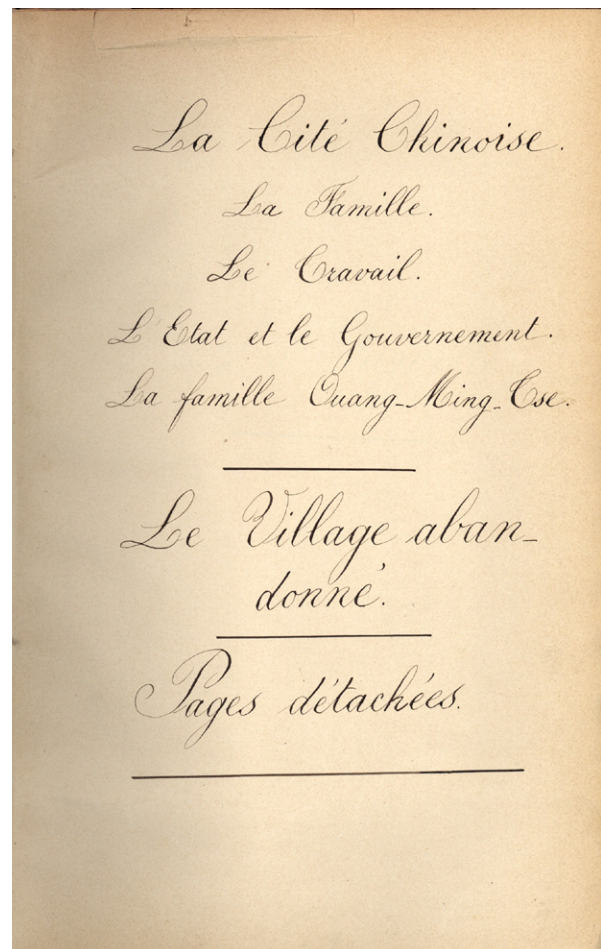 La Cité Chinoise.
La Famille.
Le Travail.
L'Etat et le Gouvernement.
La famille Ouang-Ming-Tse.
Le Village aban-
donné.
Pages détachées.